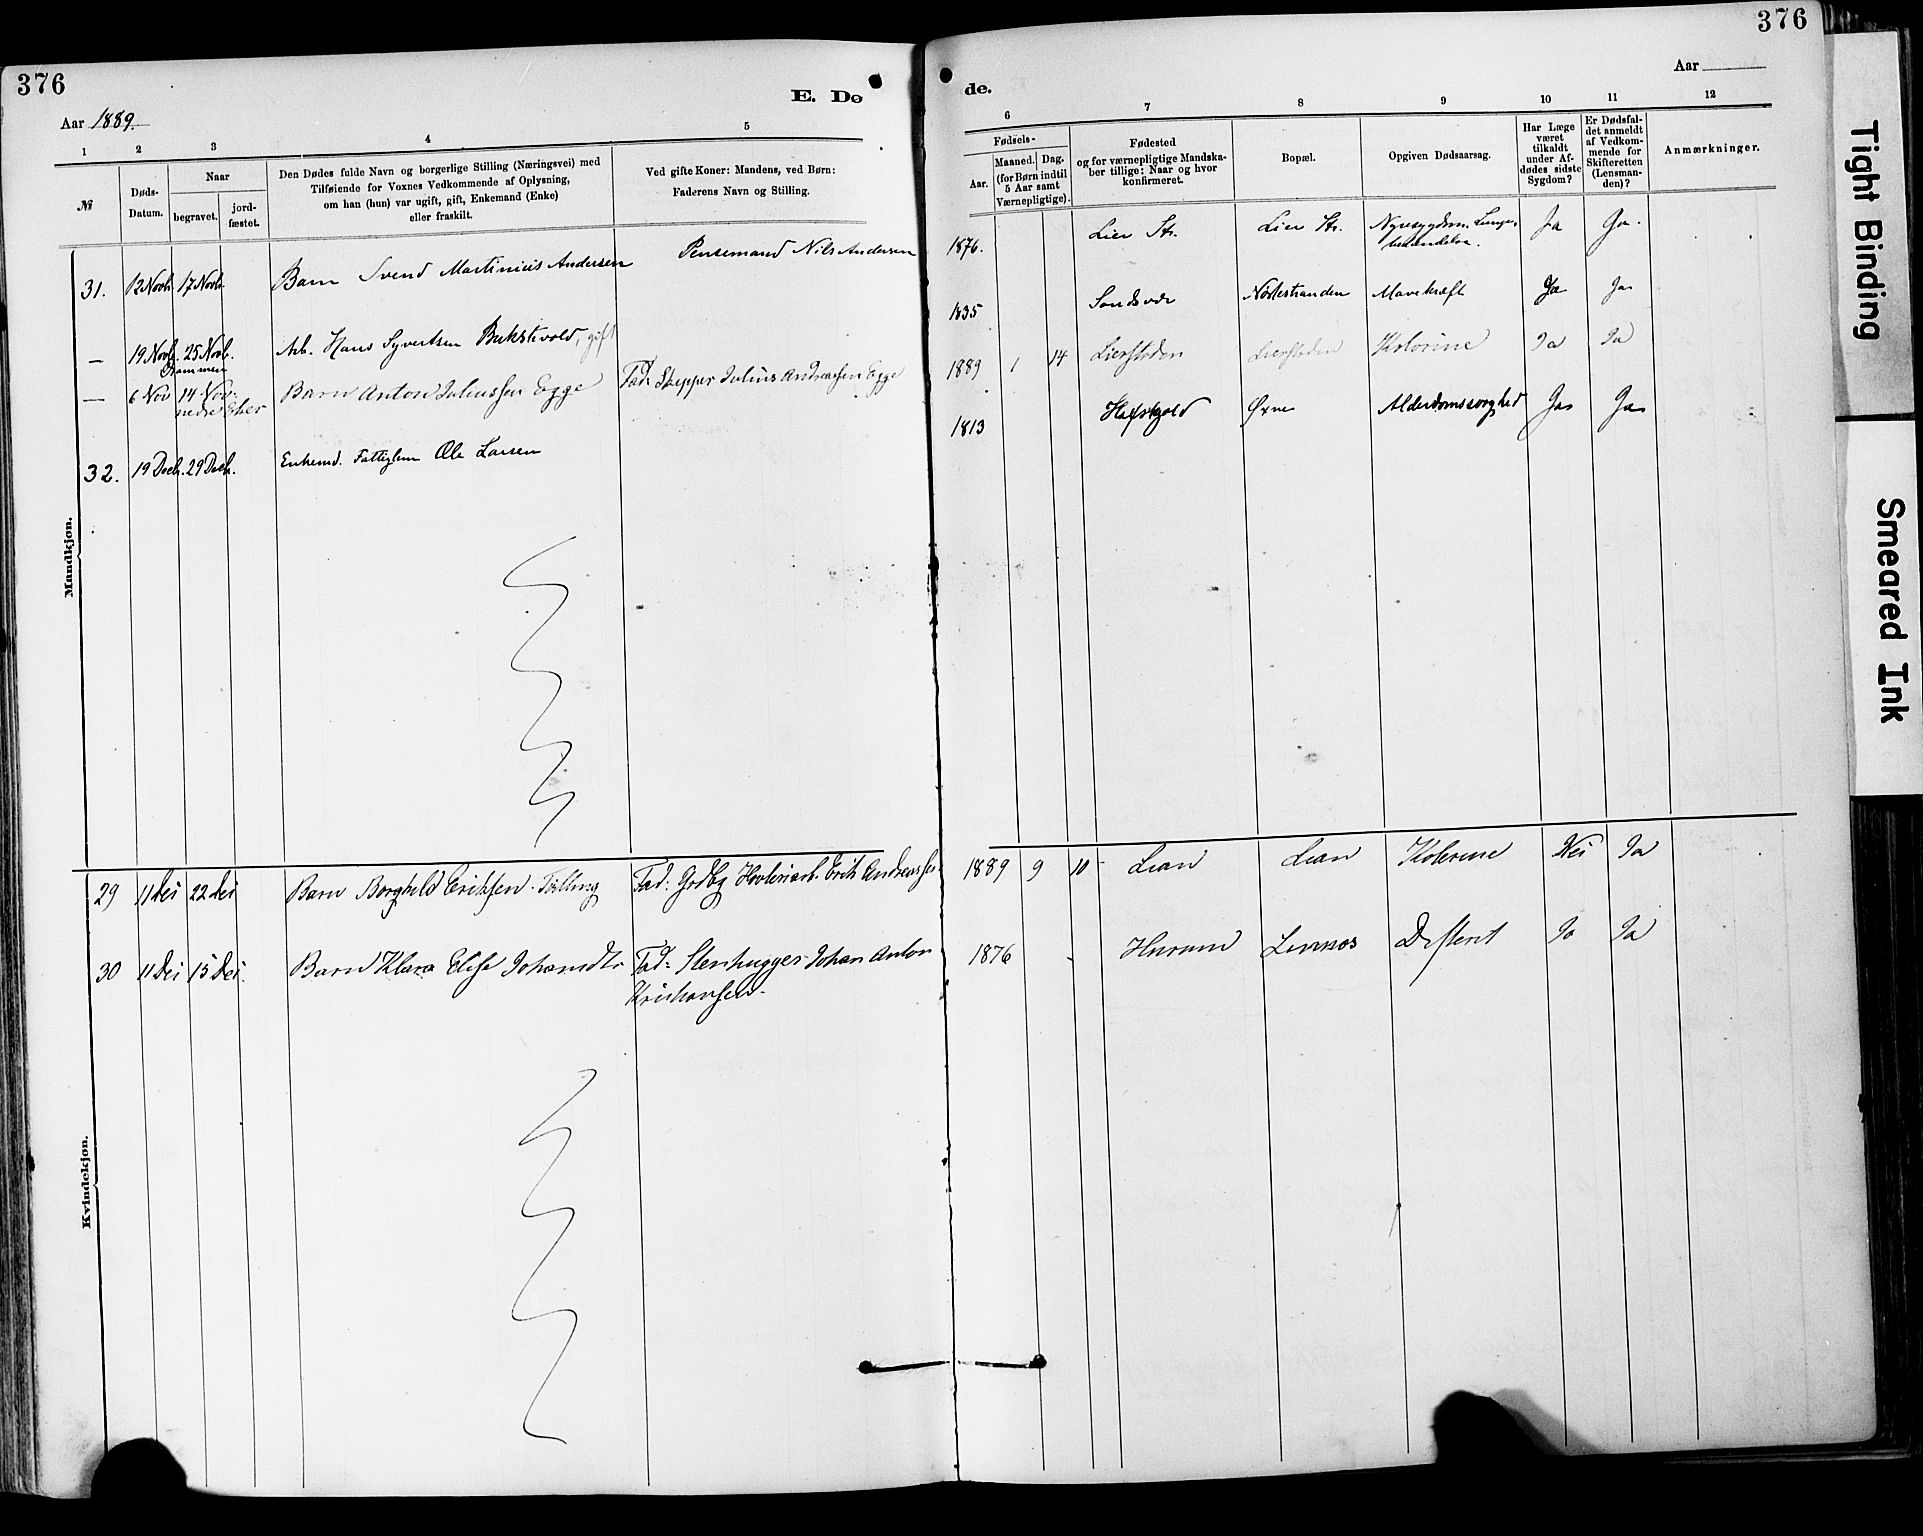 376
Aar 1889.
E. Dø
1 2 3 4 5
№
Døds-
Datum.
Naar
begravet.
jord-
fæstet.
Den Dødes fulde Navn og borgerlige Stilling (Næringsvei) med
Tilføiende for Voxnes Vedkommende af Oplysning,
om han (hun) var ugift, gift, Enkemand (Enke)
eller fraskilt.
Ved gifte Koner: Mandens, ved Børn:
Faderens Navn og Stilling.
Mandkjøn.
31. 12 Novb. 17 Novb. Barn Svend Martinius Andersen Nils Andersen
— 19 Novb. 25 Novb. Arb. Hans Syvertsen gift
Drammen
— 6 Nov 14 Nov. Barn Anton Juliussen Egge Fad: Skipper Julius Andreassen Egge
nedre Eker
32. 19 Decb. 29 Decb. Enkemd. Fattiglem Ole Larsen
Kvindekjøn.
29 11 Des 22 Des Barn Borghild Eriksen Tilling Fad: Grdbg Høvleriarb. Erik Andreassen
30 11 Des 15 Des. Barn Klara Elise Johansdtr Fad: Stenhugger Johan Anton
Kristiansen.
376
Aar
de.
6 7 8 9 10 11 12
Fødsels-
Aar.
Maaned. Dag.
(for Børn indtil
5 Aar samt
Værnepligtige).
Fødested
og for værnepligtige Mandska-
ber tillige: Naar og hvor
konfirmeret.
Bopæl.
Opgiven Dødsaarsag.
Har Læge
været
tilkaldt
under Af-
dødes sidste
Sygdom?
Er Dødsfal-
det anmeldt
af Vedkom-
mende for
Skifteretten
(Lensman-
den)?
Anmærkninger.
1876. Lier Str. Lier Str. Nyresygdom. Lunge-
betændelse. Ja Ja.
1835 Sandsvær Nøstestranden Mavekræft Ja Ja
1889 1 14 Lierstrden Lierstrden Kolerine Ja Ja
1813 Øxne Alderdomssvaghed Ja Ja
1889 9 10 Lian Lian Kolerine Nei Ja
1876 Hurum Linnes Difterit Ja Ja
Tight Binding
Smeared Ink